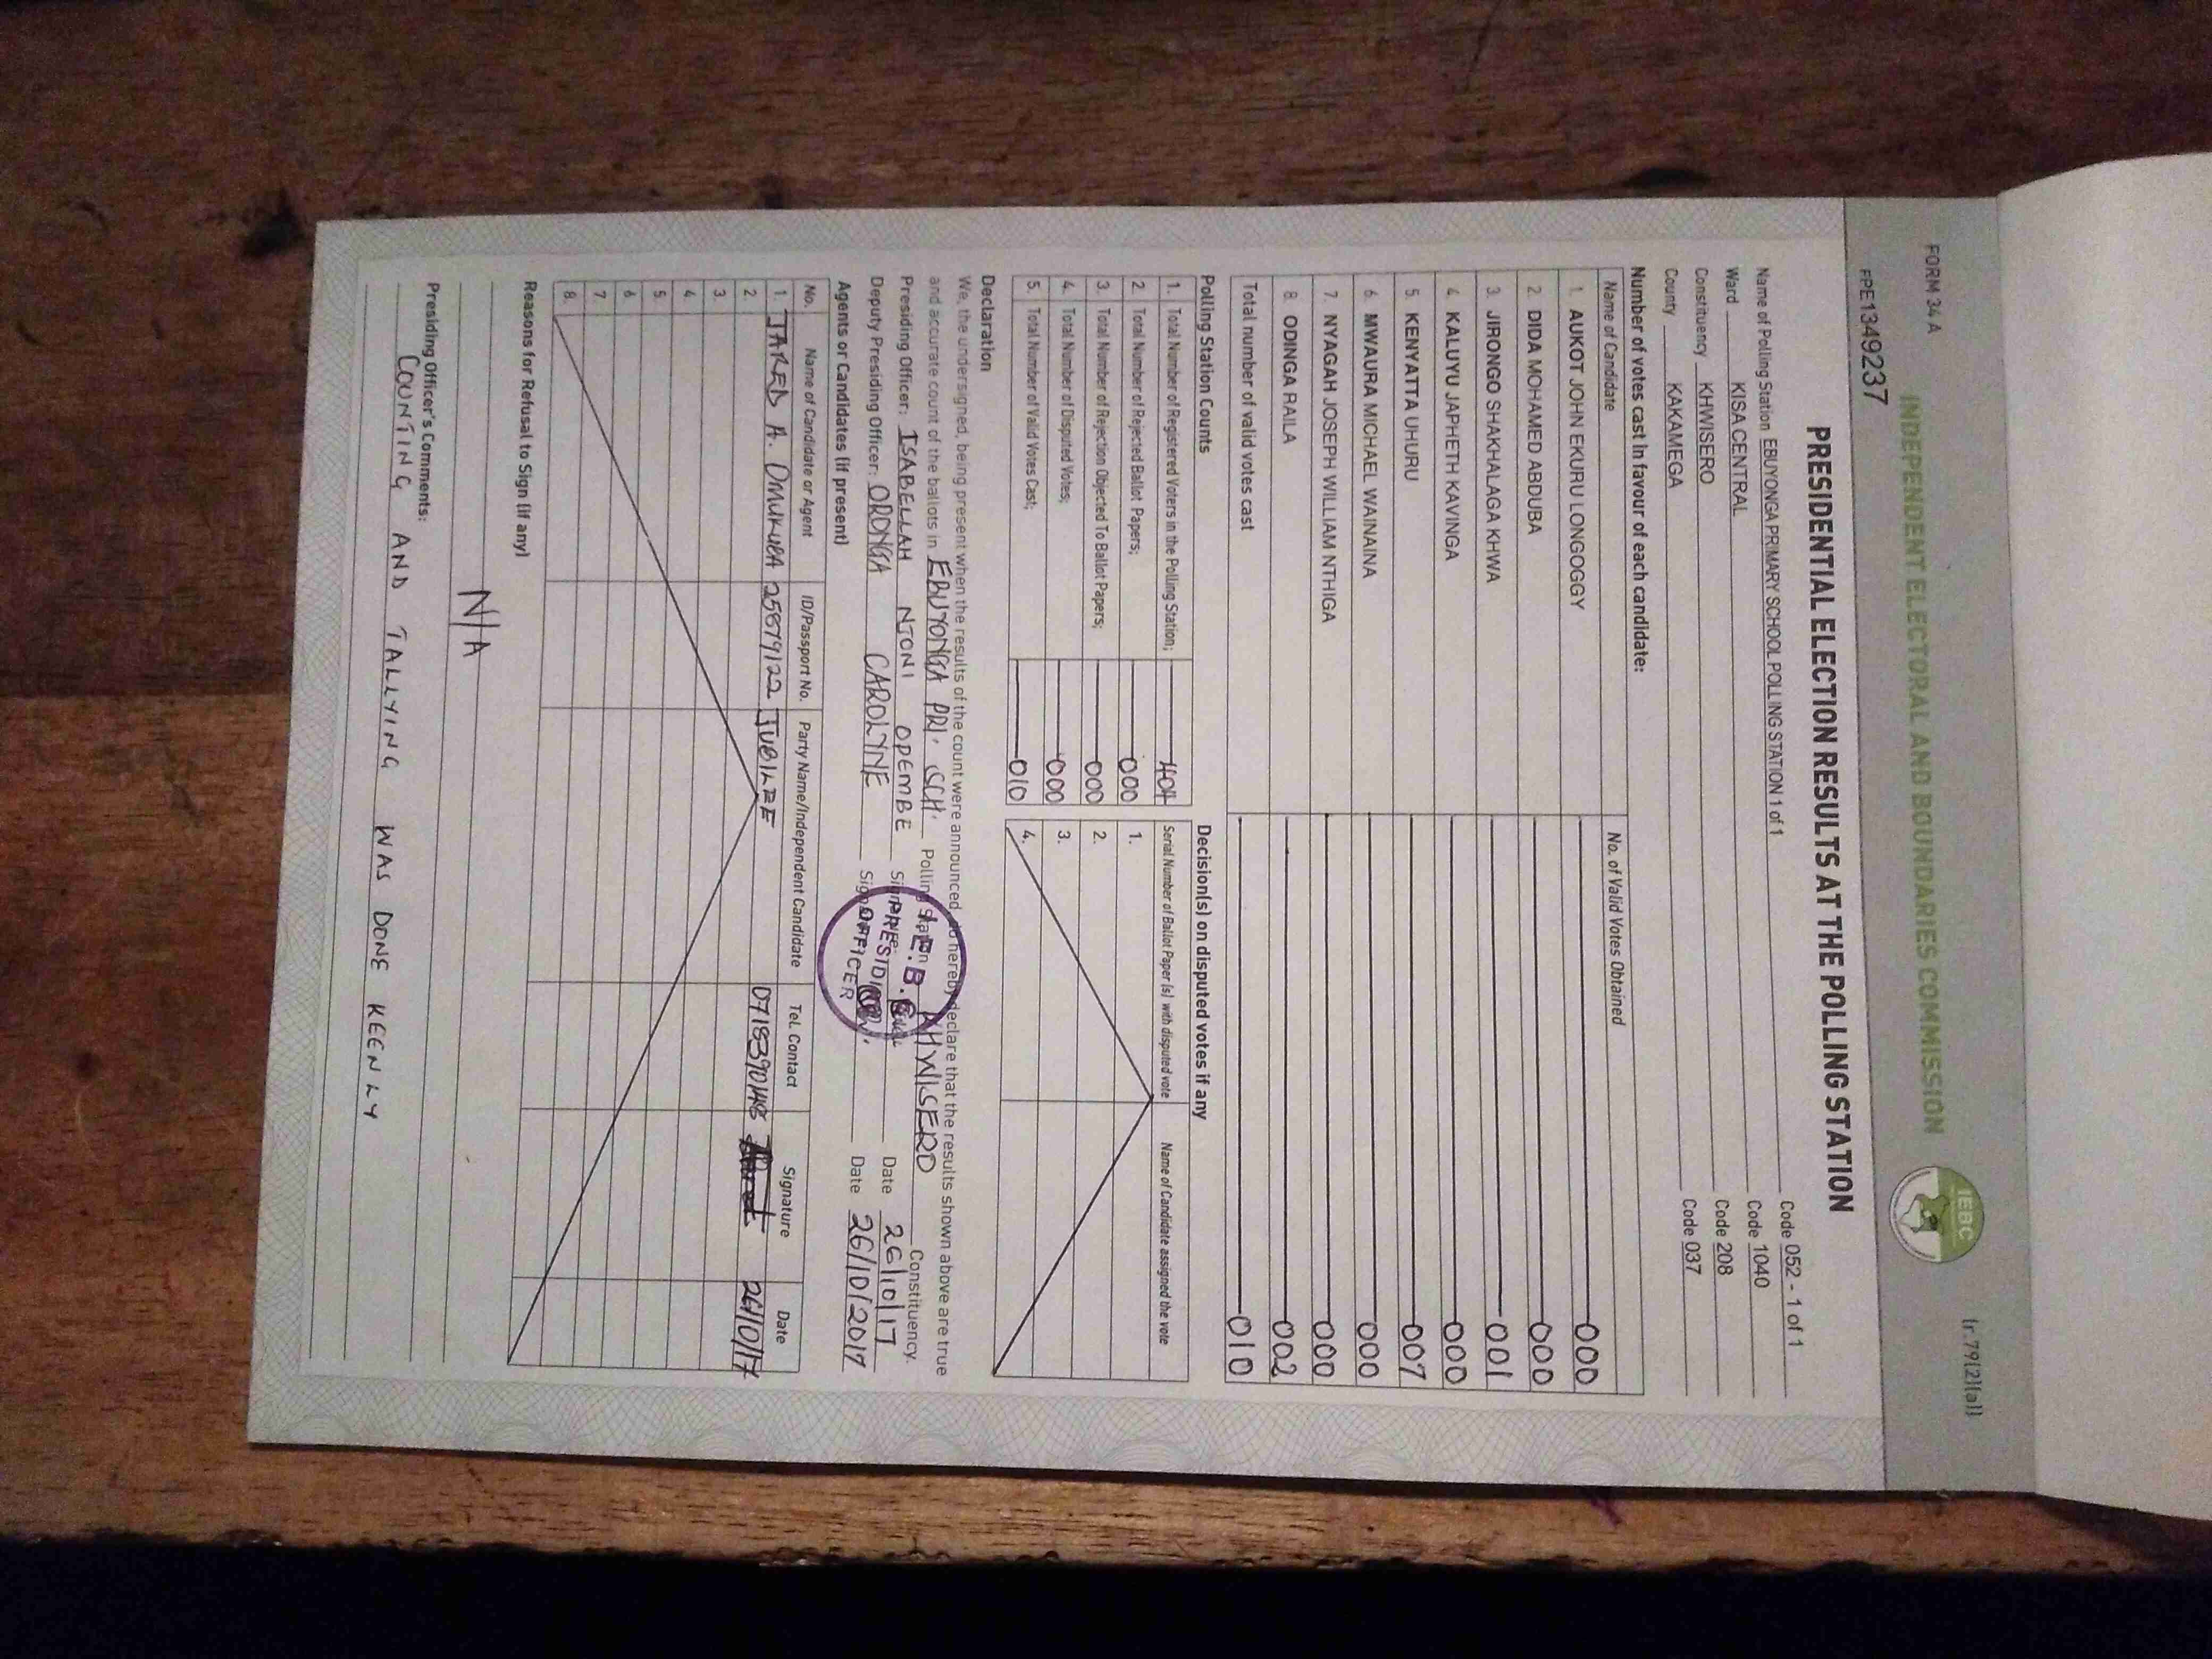 FORM 34 A
(r.79(2)(a))
INDEPENDENT ELECTORAL AND BOUNDARIES COMMISSION
IEBC
FPE1349237
PRESIDENTIAL ELECTION RESULTS AT THE POLLING STATION
Name of Polling Station EBUYONGA PRIMARY SCHOOL POLLING STATION 1 of 1 Code 052 - 1 of 1
Ward KISA CENTRAL Code 1040
Constituency KHWISERO Code 208
County KAKAMEGA Code 037
Number of votes cast in favour of each candidate:
Name of Candidate No. of Valid Votes Obtained
1. AUKOT JOHN EKURU LONGOGGY 000
2. DIDA MOHAMED ABDUBA 000
3. JIRONGO SHAKHALAGA KHWA 001
4. KALUYU JAPHETH KAVINGA 000
5. KENYATTA UHURU 007
6. MWAURA MICHAEL WAINAINA 000
7. NYAGAH JOSEPH WILLIAM NTHIGA 000
8. ODINGA RAILA 002
Total number of valid votes cast 010
Polling Station Counts
1. Total Number of Registered Voters in the Polling Station; 404
2. Total Number of Rejected Ballot Papers; 000
3. Total Number of Rejection Objected To Ballot Papers; 000
4. Total Number of Disputed Votes; 000
5. Total Number of Valid Votes Cast; 010
Decision(s) on disputed votes if any
Serial Number of Ballot Paper (s) with disputed vote Name of Candidate assigned the vote
1.
2.
3.
4.
Declaration
We, the undersigned, being present when the results of the count were announced, do hereby declare that the results shown above are true
and accurate count of the ballots in EBUYONGA PRI. SCH. Polling Station KHWISERO Constituency.
Presiding Officer: ISABELLAH NJONI OPEMBE Signature Date 26/10/17
Deputy Presiding Officer: ORONGA CAROLYNE Signature Date 26/10/2017
I.E.B.C
PRESIDING
OFFICER
Agents or Candidates (if present)
No. Name of Candidate or Agent ID/Passport No. Party Name/Independent Candidate Tel. Contact Signature Date
1. JARED A. OMUKUBA 25879122 JUBILEE 0718390148 26/10/17
2.
3.
4
5
6
7
8.
Reasons for Refusal to Sign (if any)
N/A
Presiding Officer's Comments:
COUNTING AND TALLYING WAS DONE KEENLY